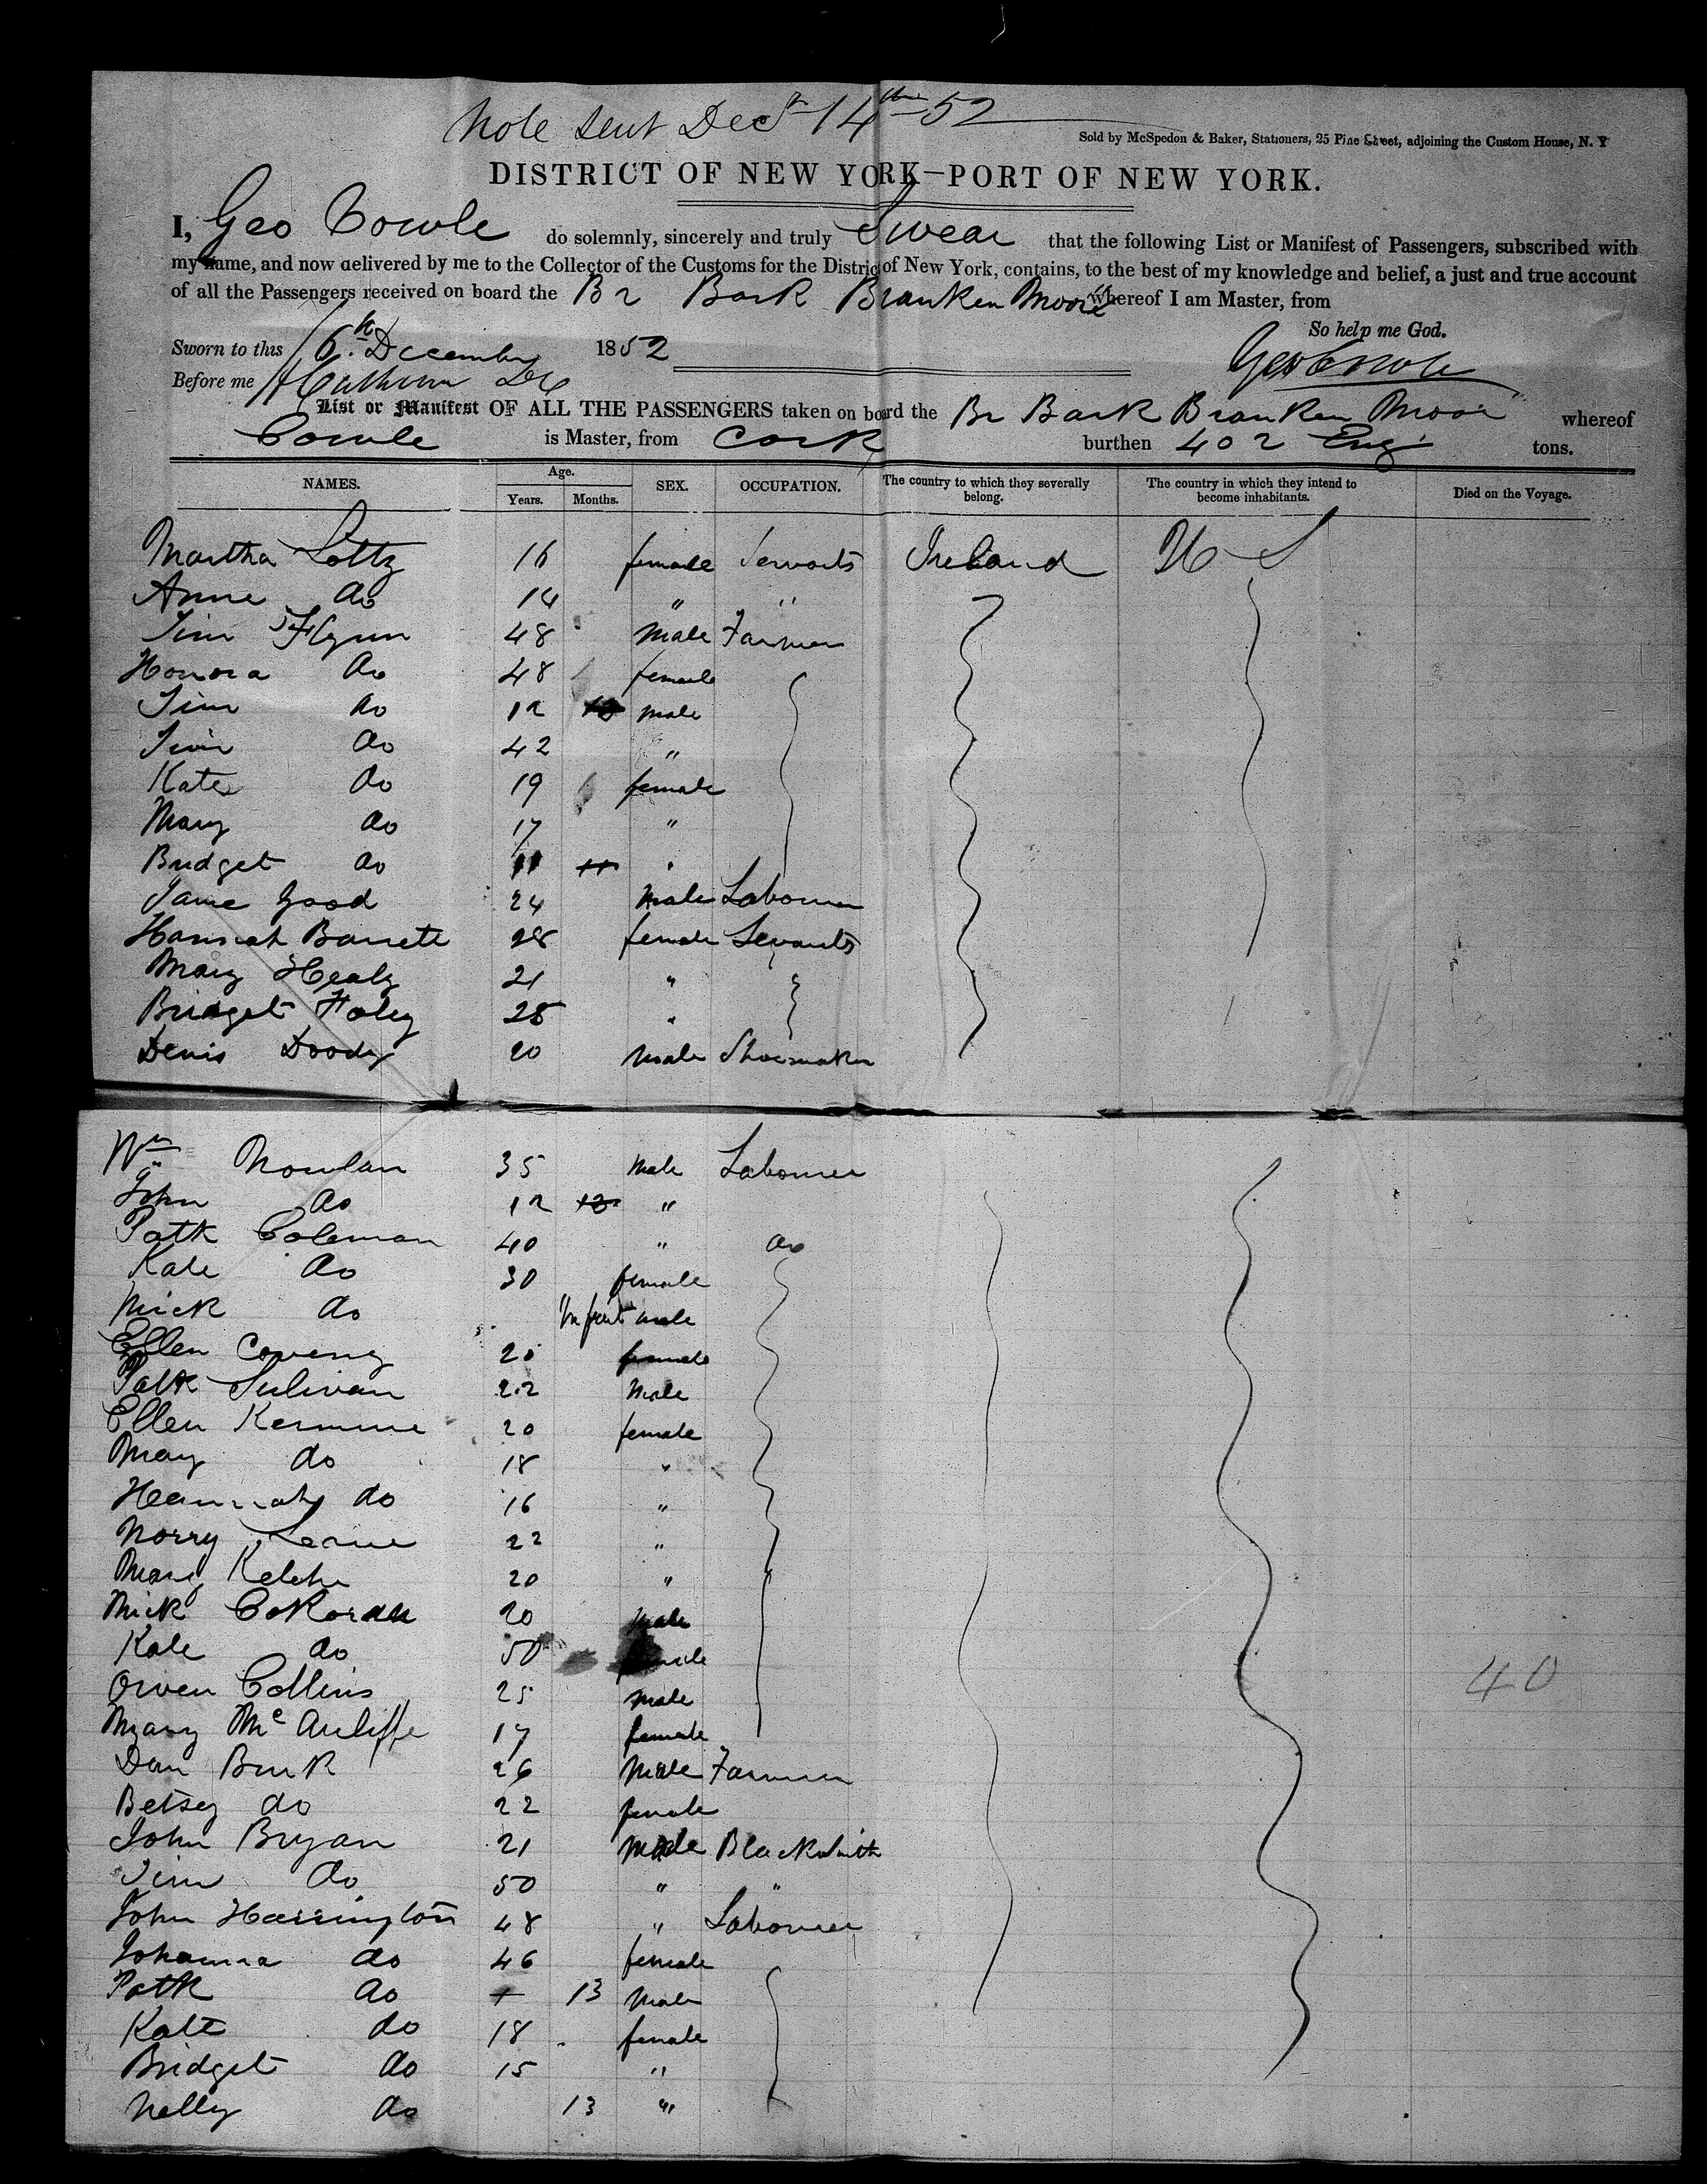 Note sent Decr 14th 52
Sold by McSpedon & Baker, Stationers, 25 Pine Street, adjoining the Custom House, N. Y
DISTRICT OF NEW YORK—PORT OF NEW YORK.
I, Geo Cowle do solemnly, sincerely and truly Swear that the following List or Manifest of Passengers, subscribed with
my name, and now delivered by me to the Collector of the Customs for the District of New York, contains, to the best of my knowledge and belief, a just and true account
of all the Passengers received on board the Br Bark Branken Moore whereof I am Master, from
So help me God.
Sworn to this 6th December 1852
Geo Cowle
Before me
List or Manifest OF ALL THE PASSENGERS taken on board the Br Bark Branken Moor whereof
Cowle is Master, from Cork burthen 402 Eng tons.
NAMES. Age. Years. Months. SEX. OCCUPATION. The country to which they severally belong. The country in which they intend to become inhabitants. Died on the Voyage.
Martha 16 female Servants Ireland U S
Anne do 14 " "
Tim Flynn 48 male Farmer
Honora do 48 female
Tim do 12 male
do 42 "
Kate do 19 female
Mary do 17 "
Bridget do 11 11 "
Jame Good 24 male Labourer
Hannah Barrett 28 female Servants
Mary Healy 21 "
Bridget Foley 25 "
Denis Doody 20 male Shoemaker
Wm Nowlan 35 male Labourer
John do 12 "
Patk Coleman 40 " do
Kate do 30 female
Mick do Infant male
Ellen Coveny 20 female
Patk Sulivan 22 male
Ellen 20 female
Mary do 18 "
Heannah do 16 "
Norry 22 "
Mary 20 "
Mick CoKoran 20 male
Kate do 50 female
Owen Collins 25 male
40
Mary McAuliffe 17 female
Dan Burk 26 male Farmer
Betsey do 22 female
John Bryan 21 male Blacksmith
Tim do 50 " "
John Harrington 48 " Labourer
Johanna do 46 female
Patk do 13 male
Kate do 18 female
Bridget do 15 "
Nelly do 13 "